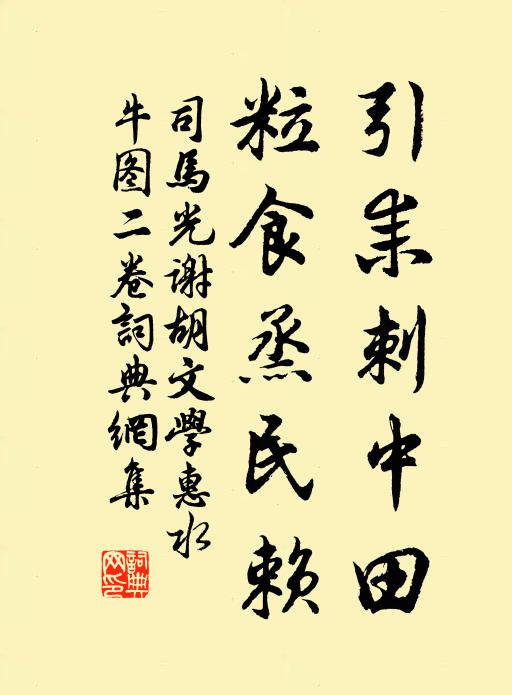 引耒刺中田
粒食烝民赖
司馬光谢胡文學惠水
牛图二卷詞典網集
詞典
网印